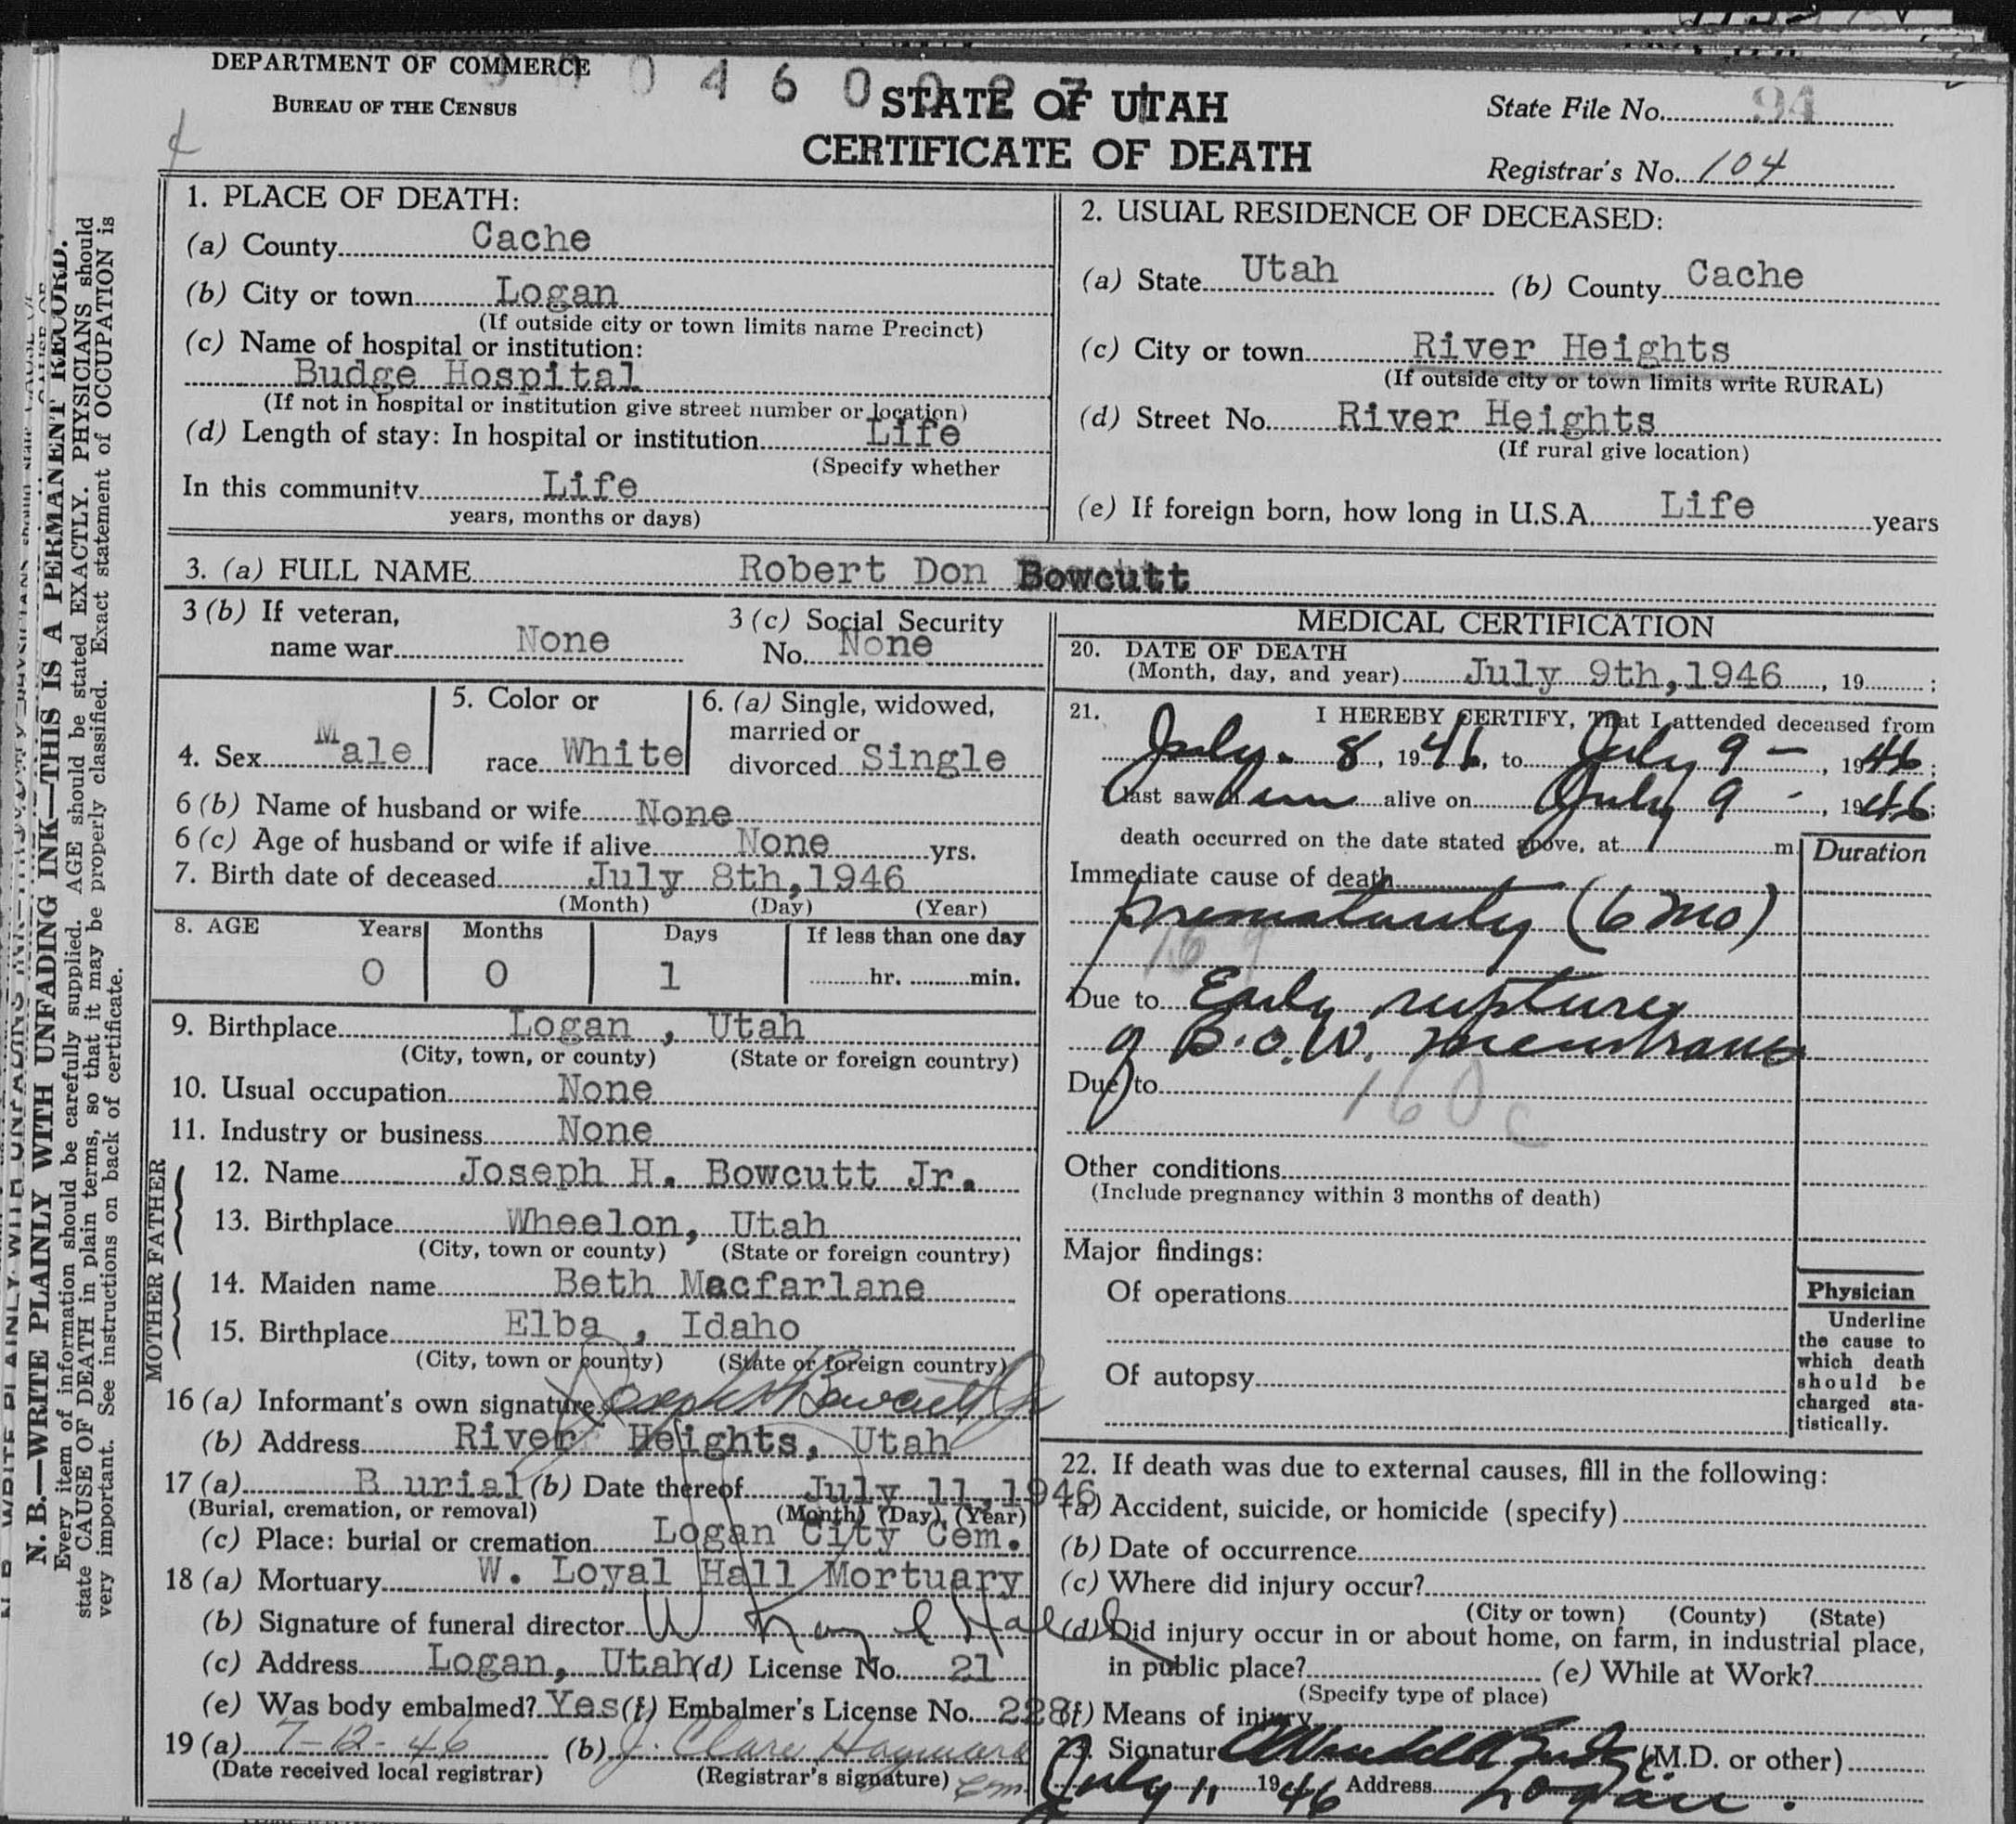 DEPARTMENT OF COMMERCE
BUREAU OF THE CENSUS
0 4 6 0
STATE OF UTAH
CERTIFICATE OF DEATH
State File No. 94
Registrar's No. 104
N. B.—WRITE PLAINLY WITH UNFADING INK—THIS IS A PERMANENT RECORD.
Every item of information should be carefully supplied. AGE should be stated EXACTLY. PHYSICIANS should
state CAUSE OF DEATH in plain terms, so that it may be properly classified. Exact statement of OCCUPATION is
very important. See instructions on back of certificate.
1. PLACE OF DEATH:
(a) County Cache
(b) City or town Logan
(If outside city or town limits name Precinct)
(c) Name of hospital or institution:
Budge Hospital
(If not in hospital or institution give street number or location)
(d) Length of stay: In hospital or institution Life
(Specify whether
In this community Life
years, months or days)
2. USUAL RESIDENCE OF DECEASED:
(a) State Utah (b) County Cache
(c) City or town River Heights
(If outside city or town limits write RURAL)
(d) Street No. River Heights
(If rural give location)
(e) If foreign born, how long in U.S.A. Life years
3. (a) FULL NAME Robert Don Bowcutt
3 (b) If veteran,
name war None
3 (c) Social Security
No. None
4. Sex Male
5. Color or
race White
6. (a) Single, widowed,
married or
divorced Single
6 (b) Name of husband or wife None
6 (c) Age of husband or wife if alive None yrs.
7. Birth date of deceased July 8th, 1946
(Month) (Day) (Year)
8. AGE Years Months Days If less than one day
0 0 1 hr. min.
9. Birthplace Logan, Utah
(City, town, or county) (State or foreign country)
10. Usual occupation None
11. Industry or business None
FATHER
12. Name Joseph H. Bowcutt Jr.
13. Birthplace Wheelon, Utah
(City, town or county) (State or foreign country)
MOTHER
14. Maiden name Beth Macfarlane
15. Birthplace Elba, Idaho
(City, town or county) (State or foreign country)
16 (a) Informant's own signature Joseph H Bowcutt Jr
(b) Address River Heights, Utah
17 (a) Burial (b) Date thereof July 11, 1946
(Burial, cremation, or removal) (Month) (Day) (Year)
(c) Place: burial or cremation Logan City Cem.
18 (a) Mortuary W. Loyal Hall Mortuary
(b) Signature of funeral director W Loyal Hall
(c) Address Logan, Utah (d) License No. 21
(e) Was body embalmed? Yes (f) Embalmer's License No. 228
19 (a) 7-12-46 (b) J. Clare Hayward
(Date received local registrar) (Registrar's signature) em
MEDICAL CERTIFICATION
20. DATE OF DEATH
(Month, day, and year) July 9th, 1946, 19 ;
21. I HEREBY CERTIFY, That I attended deceased from
July 8, 1946, to July 9 —, 1946;
I last saw him alive on July 9 -, 1946;
death occurred on the date stated above, at m
Duration
Immediate cause of death
Prematurity (6 mo)
169
Due to Early rupture
of B.O.W. membranes
Due to
160c
Other conditions
(Include pregnancy within 3 months of death)
Major findings:
Of operations
Of autopsy
Physician
Underline
the cause to
which death
should be
charged sta-
tistically.
22. If death was due to external causes, fill in the following:
(a) Accident, suicide, or homicide (specify)
(b) Date of occurrence
(c) Where did injury occur?
(City or town) (County) (State)
(d) Did injury occur in or about home, on farm, in industrial place,
in public place? (e) While at Work?
(Specify type of place)
(f) Means of injury
23. Signature Budge (M.D. or other)
July 11 1946 Address Logan.